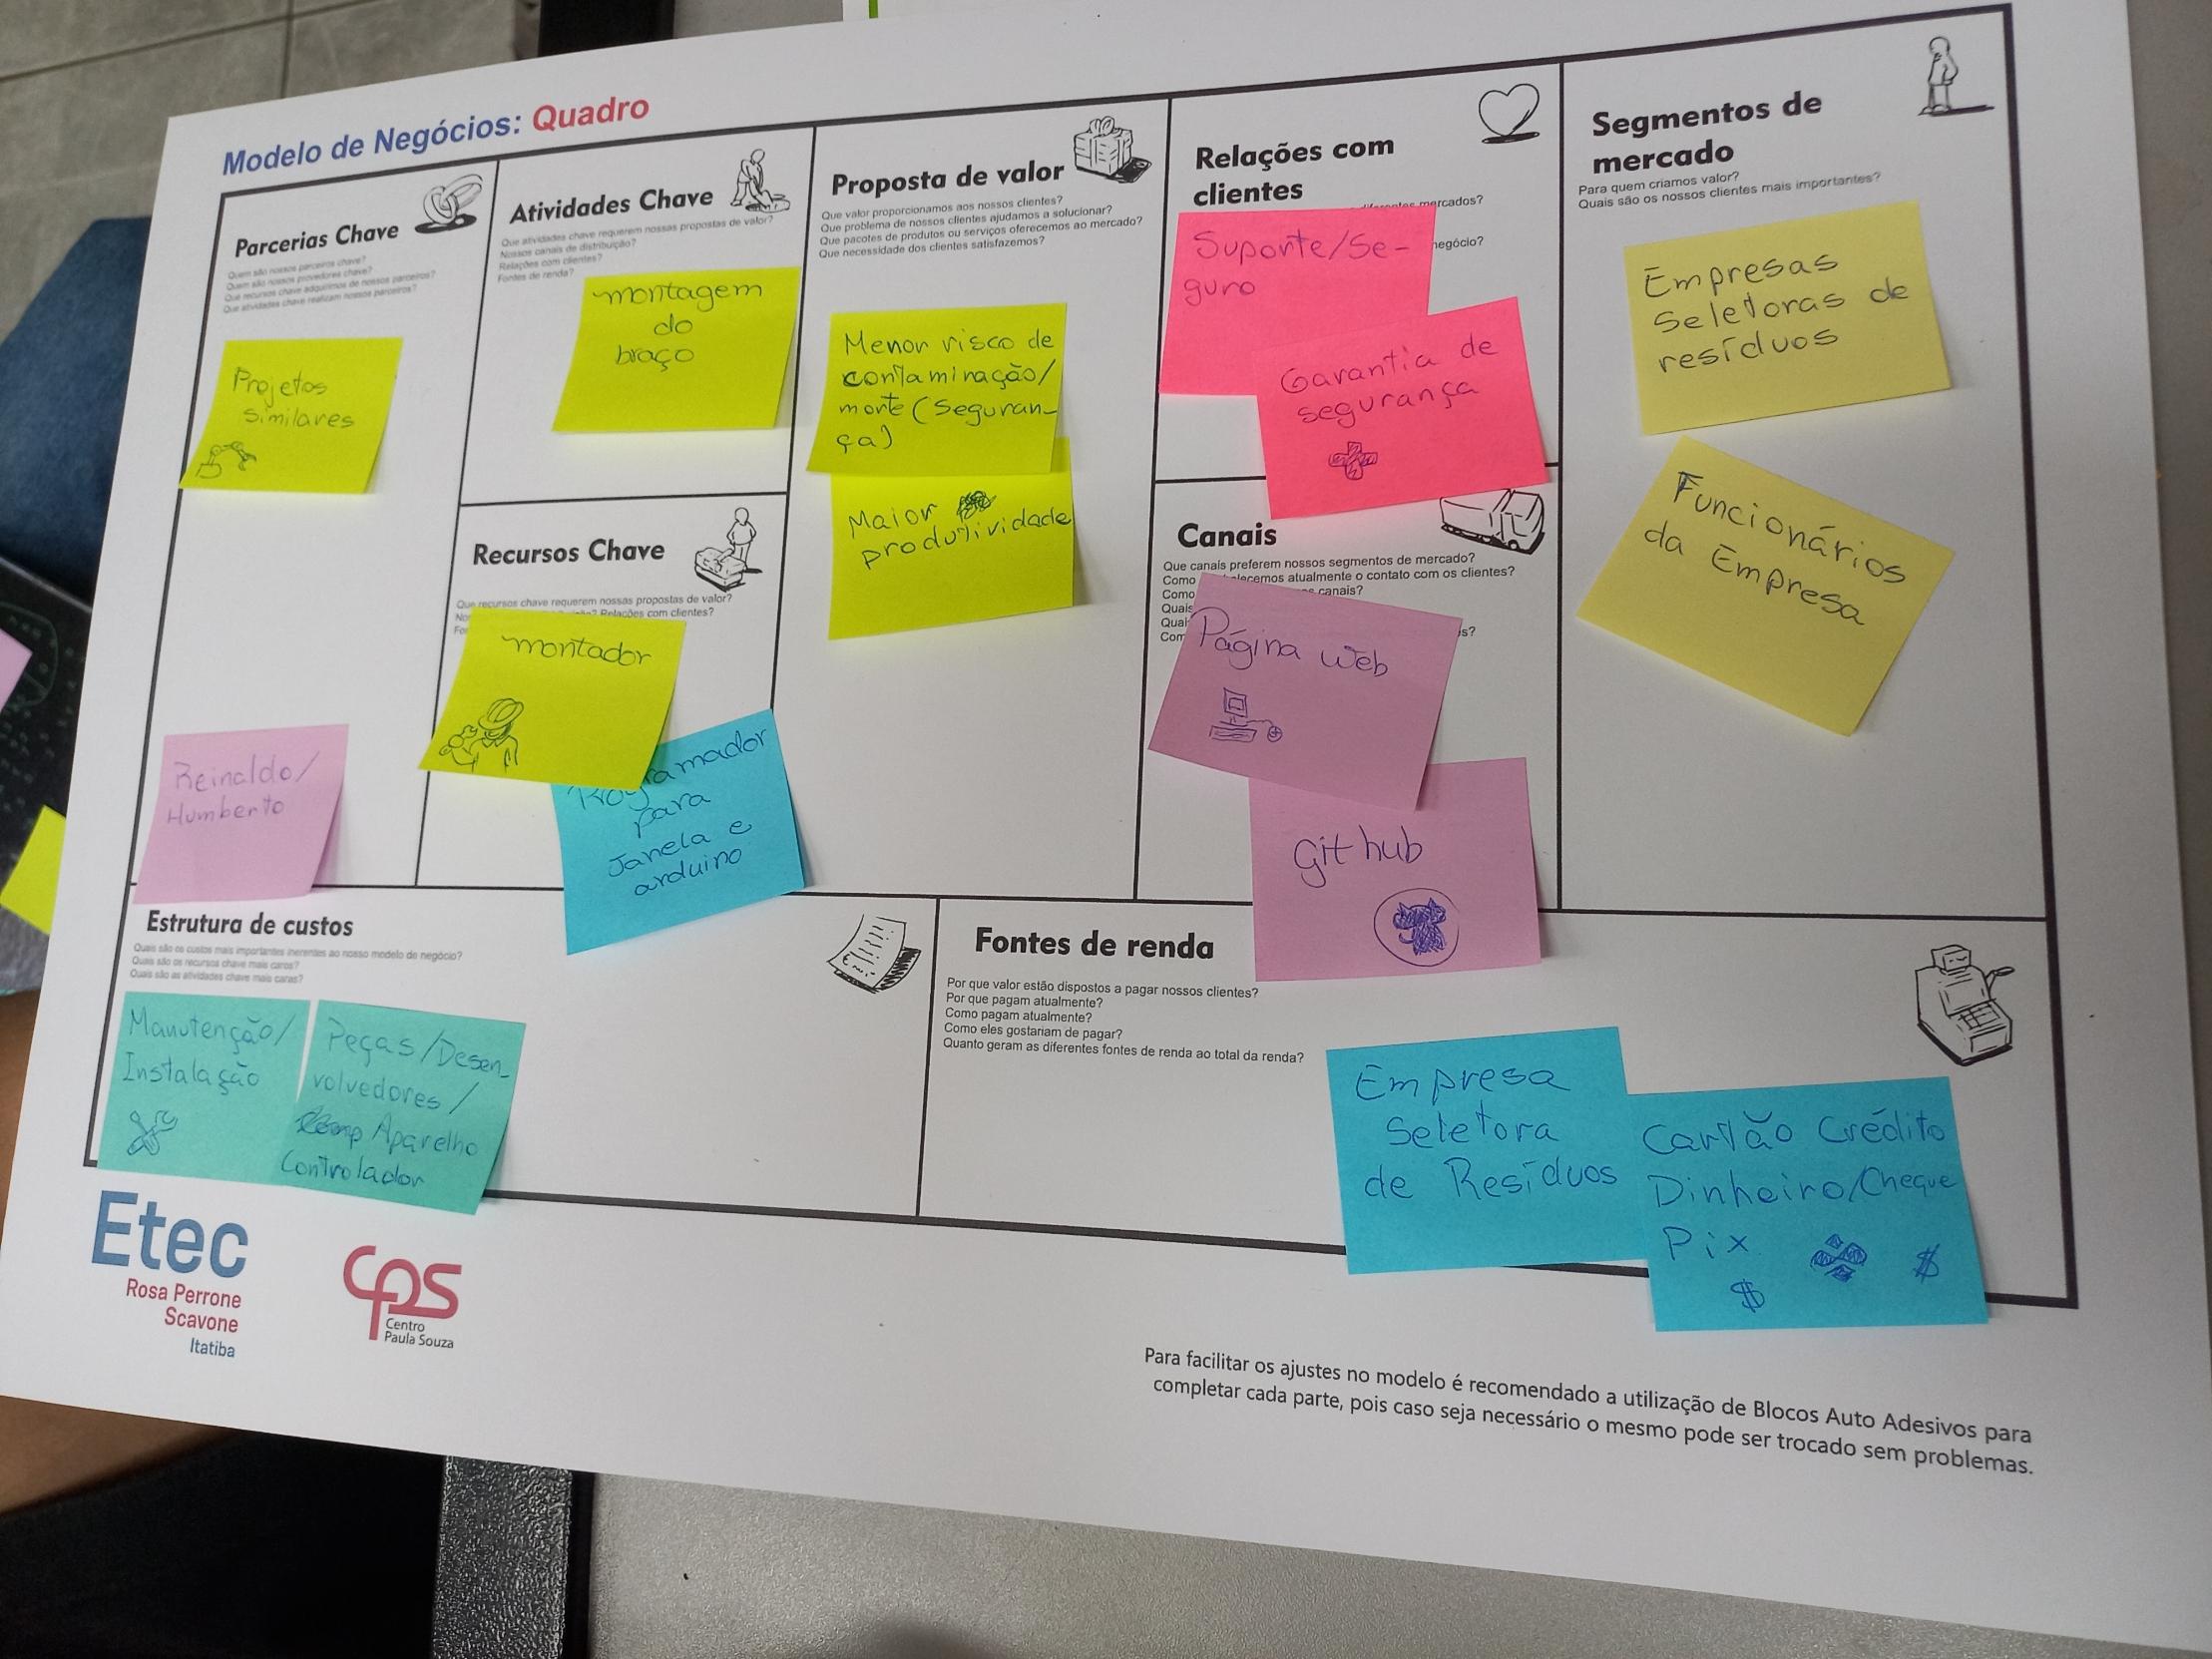 Modelo de Negócios: Quadro
Parcerias Chave
Quem são nossos parceiros chave?
Quem são nossos provedores chave?
Que recursos chave adquirimos de nossos parceiros?
Que atividades chave realizam nossos parceiros?
Projetos
similares
Reinaldo/
Humberto
Atividades Chave
Que atividades chave requerem nossas propostas de valor?
Nossos canais de distribuição?
Relações com clientes?
Fontes de renda?
montagem
do
braço
Recursos Chave
Que recursos chave requerem nossas propostas de valor?
Relações com clientes?
montador
para
Janela e
arduino
Proposta de valor
Que valor proporcionamos aos nossos clientes?
Que problema de nossos clientes ajudamos a solucionar?
Que pacotes de produtos ou serviços oferecemos ao mercado?
Que necessidade dos clientes satisfazemos?
Menor risco de
contaminação/
morte (Seguran-
ça)
Maior
produtividade
Relações com
clientes
mercados?
negócio?
Suporte/Se-
guro
Garantia de
segurança
Canais
Que canais preferem nossos segmentos de mercado?
Como atualmente o contato com os clientes?
Como canais?
Quais
Com
Página Web
Github
Segmentos de
mercado
Para quem criamos valor?
Quais são os nossos clientes mais importantes?
Empresas
Seletoras de
resíduos
Funcionários
da Empresa
Estrutura de custos
Quais são os custos mais importantes inerentes ao nosso modelo de negócio?
Quais são os recursos chave mais caros?
Quais são as atividades chave mais caras?
Manutenção/
Instalação
Peças/Desen-
volvedores/
Aparelho
Controlador
Fontes de renda
Por que valor estão dispostos a pagar nossos clientes?
Por que pagam atualmente?
Como pagam atualmente?
Como eles gostariam de pagar?
Quanto geram as diferentes fontes de renda ao total da renda?
Empresa
Seletora
de Resíduos
Cartão Crédito
Dinheiro/Cheque
Pix $
$
Etec
Rosa Perrone
Scavone
Itatiba
cps
Centro
Paula Souza
Para facilitar os ajustes no modelo é recomendado a utilização de Blocos Auto Adesivos para
completar cada parte, pois caso seja necessário o mesmo pode ser trocado sem problemas.